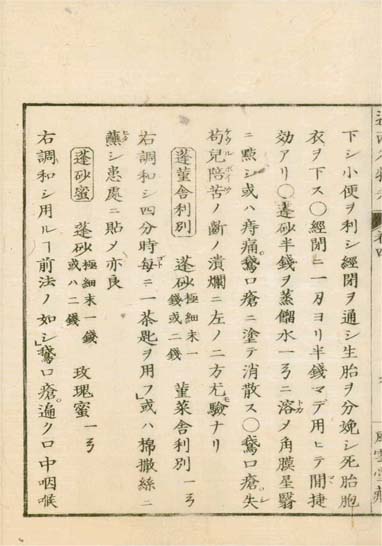 下シ小便ヲ利シ經閉ヲ通シ生胎ヲ分娩シ死胎胞
衣ヲ下ス〇經閉ニ一刄ヨリ半錢マデ用ヒテ開捷
効アリ〇蓬砂半錢ヲ蒸餾水一ᘔニ溶メ角膜星翳
ニ點シ或ハ痔痛鵞口瘡ニ塗テ消散ス〇鵞口瘡失
苟兒陪苦ノ齗ノ潰爛ニ左ノ二方尤驗ナリ
蓬菫舎利別 蓬砂極細末一錢或二錢 菫菜舎利別一ᘔ
右調和シ四分時每ニ一茶匙ヲ用フ或ハ棉撒絲ニ
蘸シ患處ニ貼メ亦良
蓬砂蜜 蓬砂極細末一錢或ハ二錢 玫瑰蜜一ᘔ
右調和シ用ルヿ前法ノ如シ鵞口瘡遍ク口中咽喉